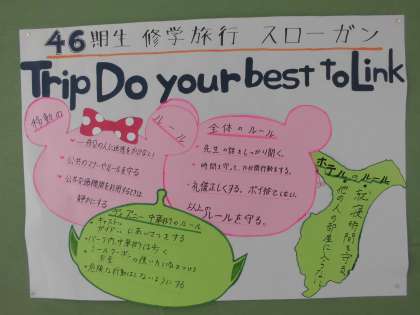 46期生 修学旅行 スローガン
Trip Do your best to Link
移動の
ルール
・一般の人に迷惑をかけない
・公共のマナーやルールを守る
・公共交通機関を利用するときは
静かにする
全体のルール
・先生の話をしっかり聞く。
・時間を守って、
行動する。
・礼儀正しくする、ポイ捨てしない。
以上の
ルールを守る。
ホテルのルール
・就寝時間を守る
・他の人の部屋に入らない
ディズニー・中華街のルール
・キャストや
ガイドさんにあいさつをする
・パーク内、中華街では歩く
・ミールクーポンの使い
・危険な行動はしないようにする